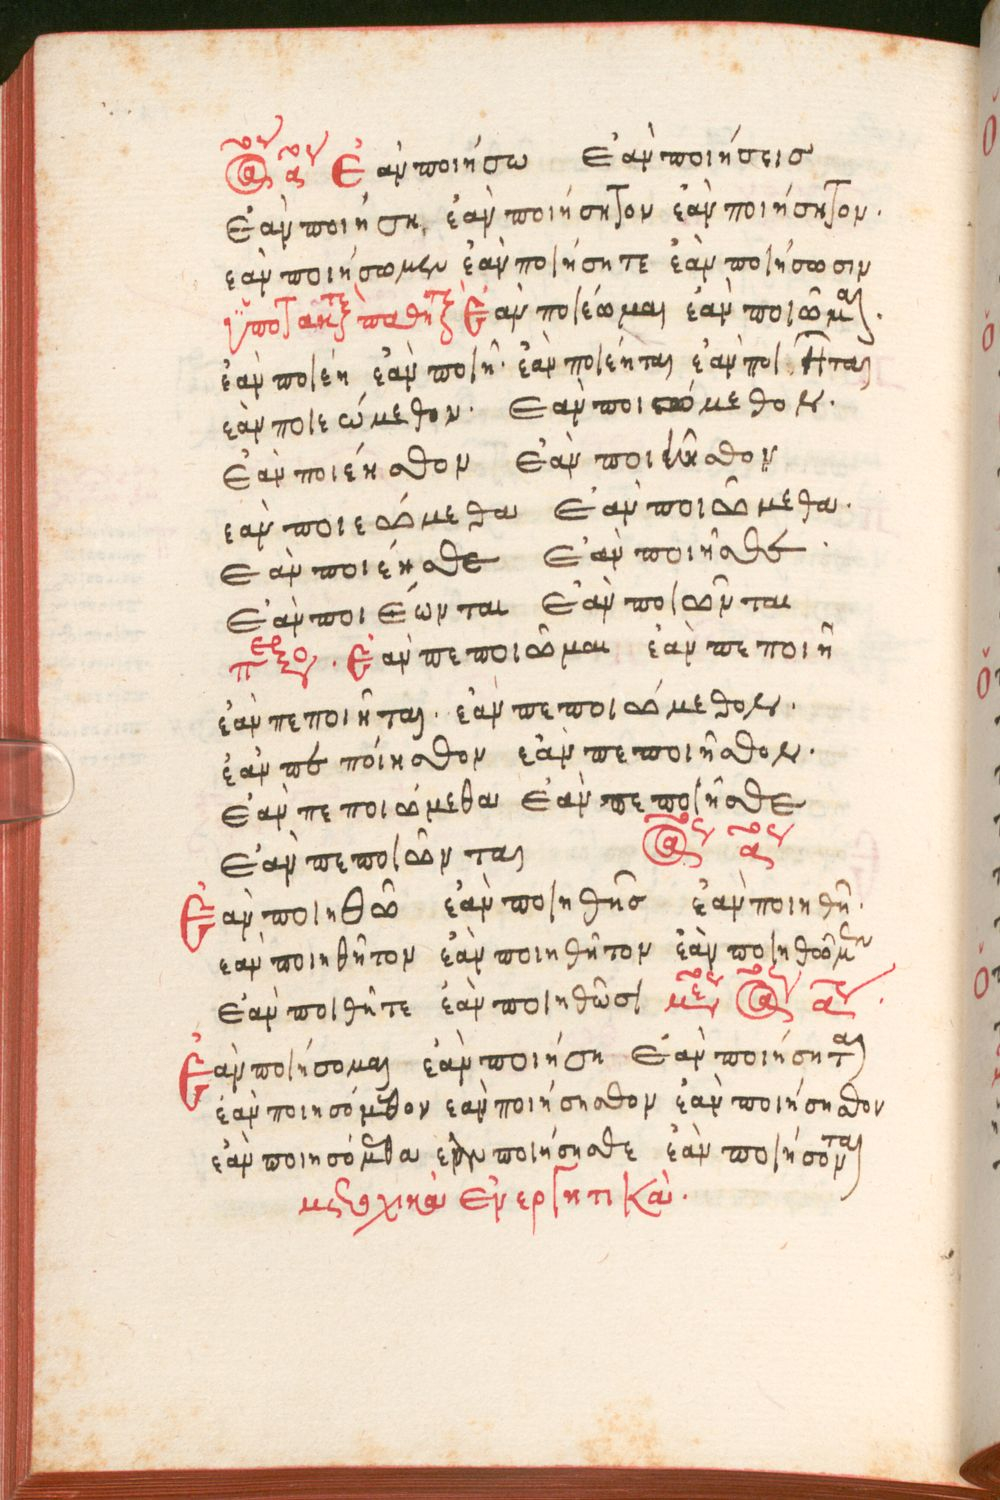 Ἐὰν ποιήσω Ἐὰν ποιήσεις
Ἐὰν ποιήση, ἐὰν ποιήσητον ἐὰν ποιήσητον.
ἐὰν ποιήσωμεν ἐὰν ποιήσητε ἐὰν ποιήσωσιν
Ἐὰν ποιέωμαι ἐὰν ποιῶμαι.
ἐὰν ποιέη ἐὰν ποιῆ· ἐὰν ποιέηται ἐὰν ποιῆται
ἐὰν ποιεώμεθον· Ἐὰν ποιώμεθον.
Ἐὰν ποιέησθον Ἐὰν ποιῆσθον
ἐὰν ποιεώμεθα Ἐὰν ποιώμεθα.
Ἐὰν ποιέησθε Ἐὰν ποιῆσθε.
Ἐὰν ποιέωνται Ἐὰν ποιῶνται
Ἐὰν πεποιῶμαι ἐὰν πεποιῆ
ἐὰν πεποιῆται. ἐὰν πεποιώμεθον.
ἐὰν πεποίησθον ἐὰν πεποιῆσθον.
Ἐὰν πεποιώμεθα Ἐὰν πεποιῆσθε
Ἐὰν πεποιῶνται
Ἐὰν ποιηθῶ ἐὰν ποιηθῆς ἐὰν ποιηθῆ.
ἐὰν ποιηθῆτον ἐὰν ποιηθῆτον ἐὰν ποιηθῶμεν
Ἐὰν ποιθῆτε ἐὰν ποιηθῶσι
Ἐὰν ποιήσομαι ἐὰν ποιήση Ἐὰν ποιήσηται
ἐὰν ποιησόμεθον ἐὰν ποιήσησθον ἐὰν ποιήσησθον
ἐὰν ποιησόμεθα ἐὰν ποιήσησθε ἐὰν ποιήσονται
μετοχικὰ Ἐνεργητικὰ.